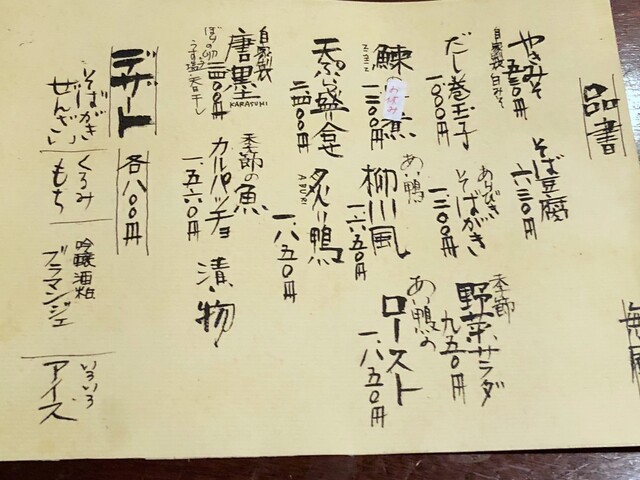 品書
やきみそ
五五〇円
自家製 白みそ
そば豆腐
六三〇円
だし巻玉子
一、〇〇〇円
あらびき
そばがき
一、二〇〇円
季節
野菜サラダ
九五〇円
鰊
煮
お休み
一、二〇〇円
あい鴨
柳川風
一、六五〇円
あい鴨の
ロースト
一、八五〇円
天ぷら盛り合せ
二、四〇〇円
炙り鴨
ABURI
一、八五〇円
自家製
唐墨
KARASUMI
二、四〇〇円
季節の魚
カルパッチョ
一、五六〇円
漬け物
デザート
各八〇〇円
そばがき
ぜんざい
くるみ
もち
吟醸酒粕
ブラマンジェ
いろいろ
アイス